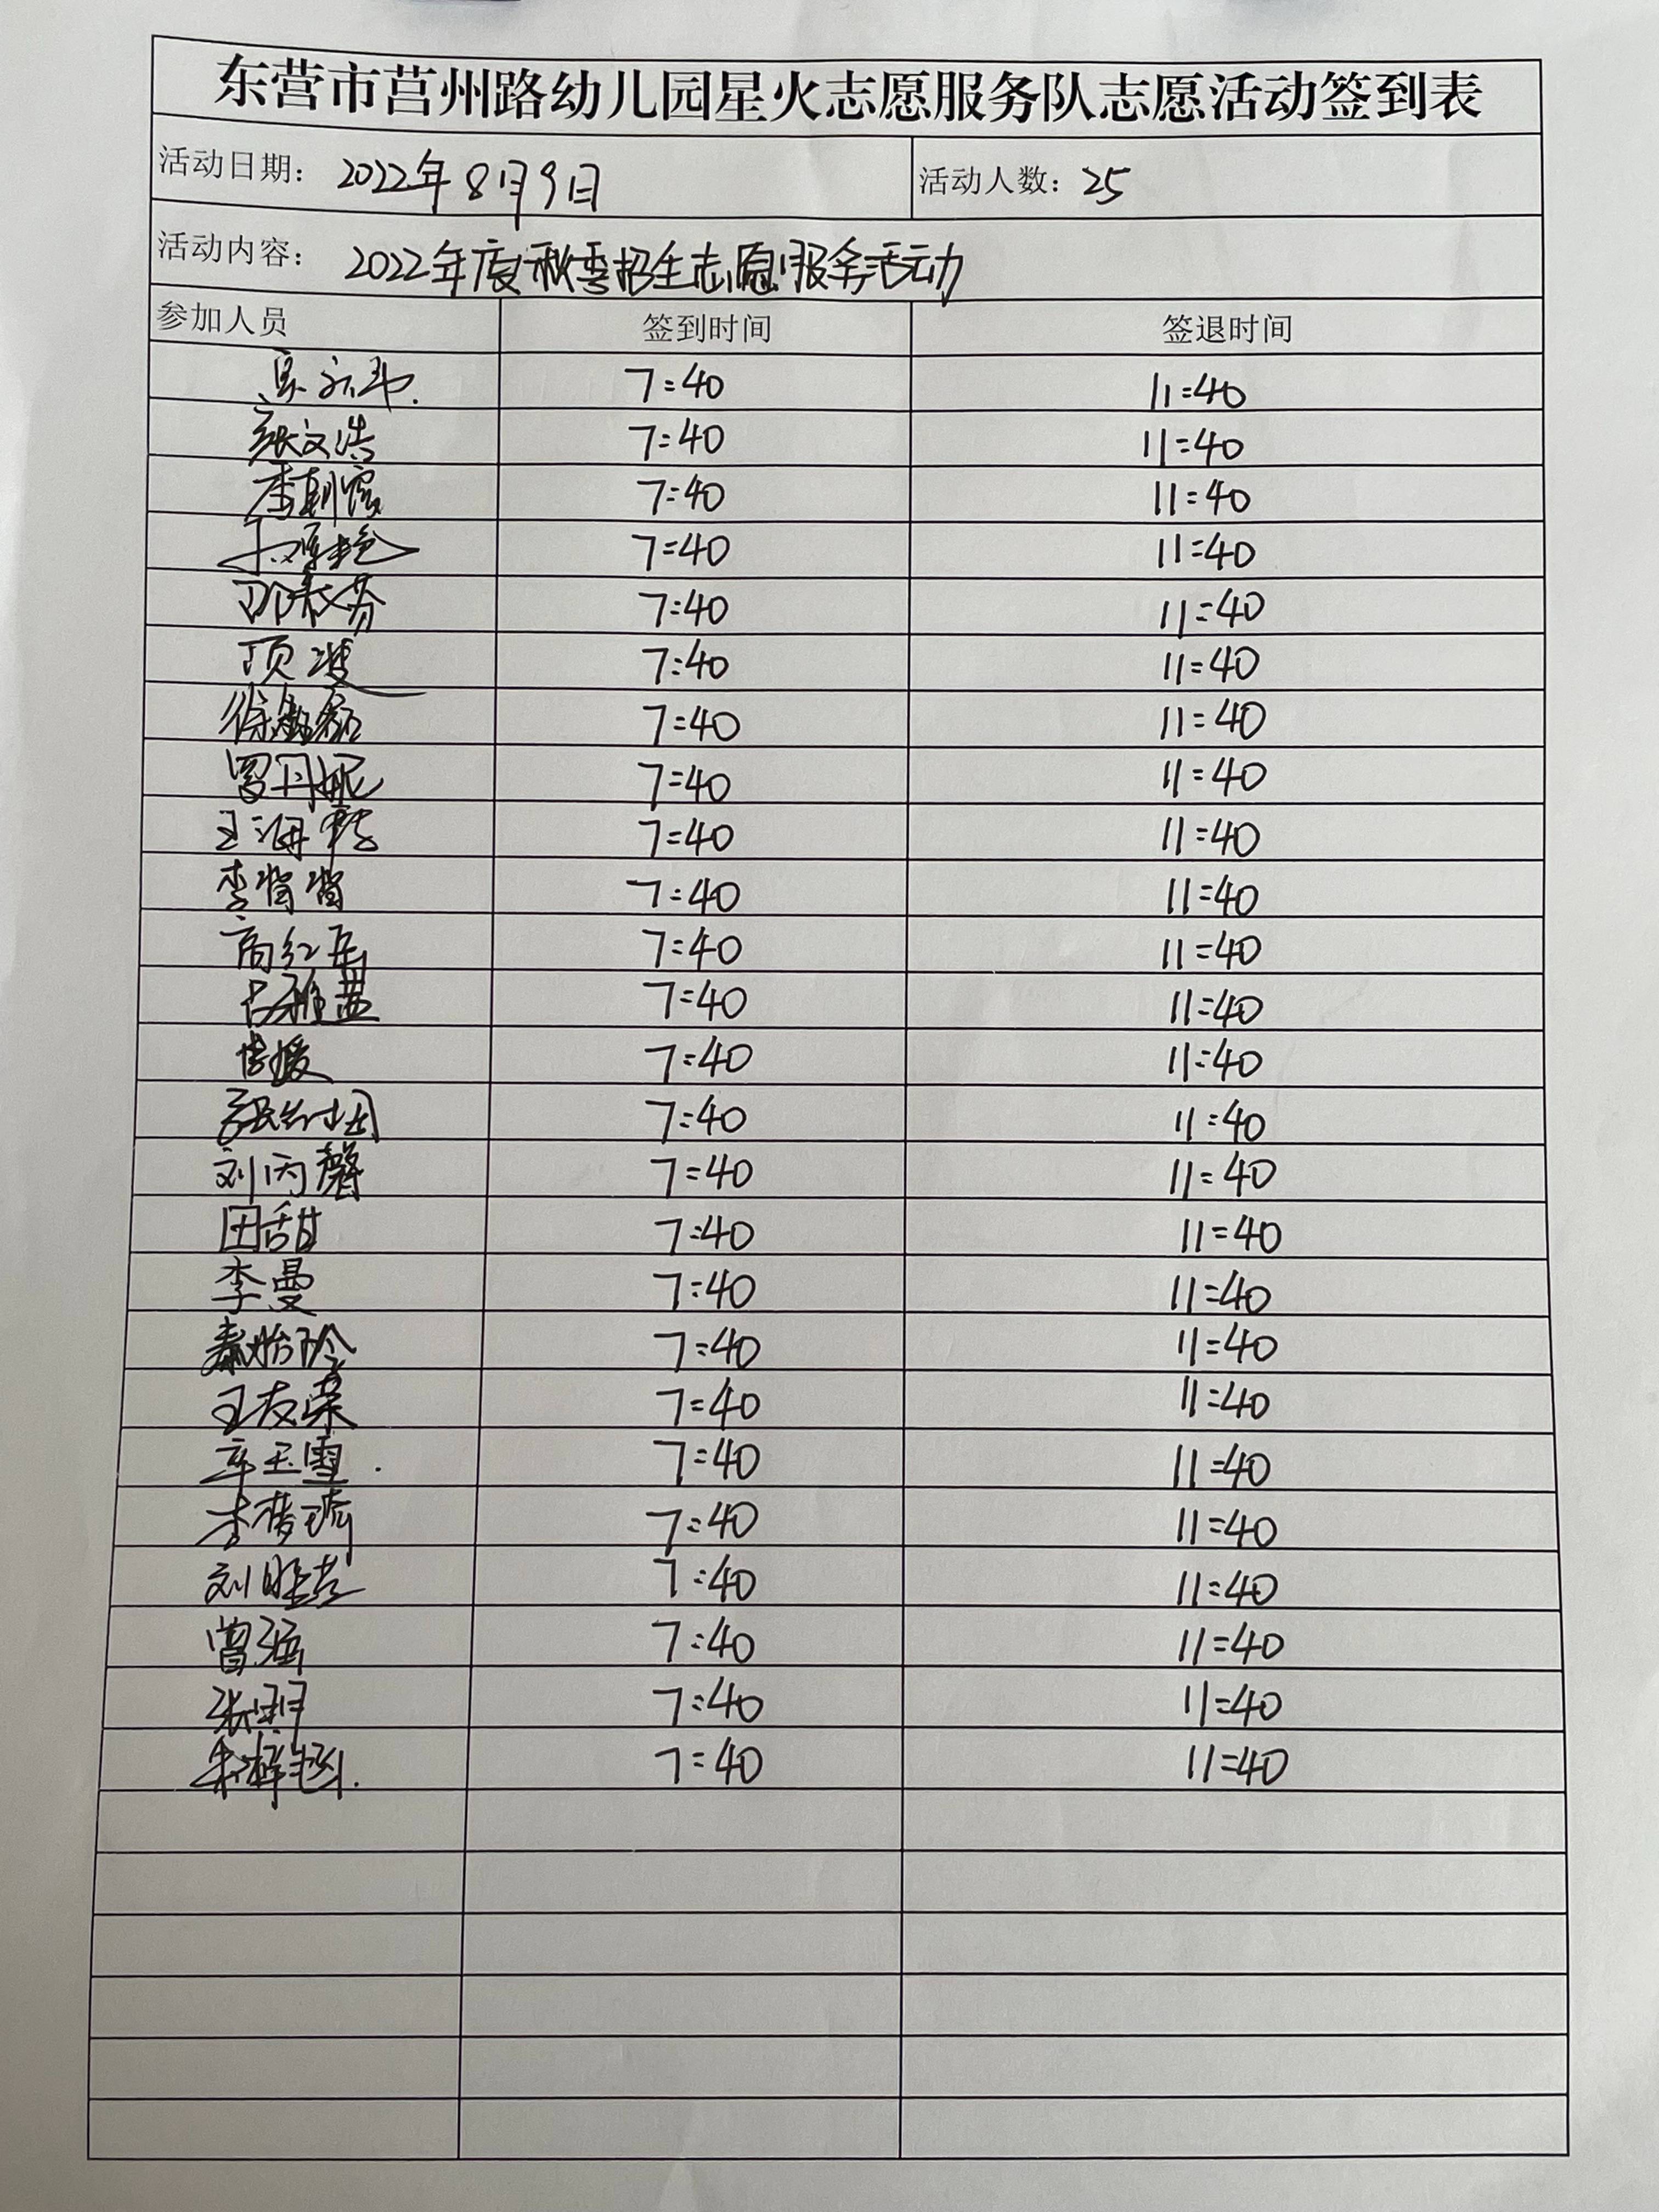 东营市莒州路幼儿园星火志愿服务队志愿活动签到表
活动日期: 2022年8月9日 活动人数: 25
活动内容: 2022年度秋季招生志愿服务活动
参加人员 签到时间 签退时间
7:40 11:40
张文浩 7:40 11:40
李朝霞 7:40 11:40
7:40 11:40
邵秋芬 7:40 11:40
顶凌 7:40 11:40
徐磊 7:40 11:40
罗丹妮 7:40 11:40
王海 7:40 11:40
李皆皆 7:40 11:40
高红岳 7:40 11:40
古雅 7:40 11:40
媛 7:40 11:40
张 7:40 11:40
刘丙馨 7:40 11:40
田甜 7:40 11:40
李曼 7:40 11:40
秦怡玲 7:40 11:40
王友荣 7:40 11:40
辛玉雪 7:40 11:40
李梦琦 7:40 11:40
刘 7:40 11:40
曾瑶 7:40 11:40
张明 7:40 11:40
朱梓 7:40 11:40